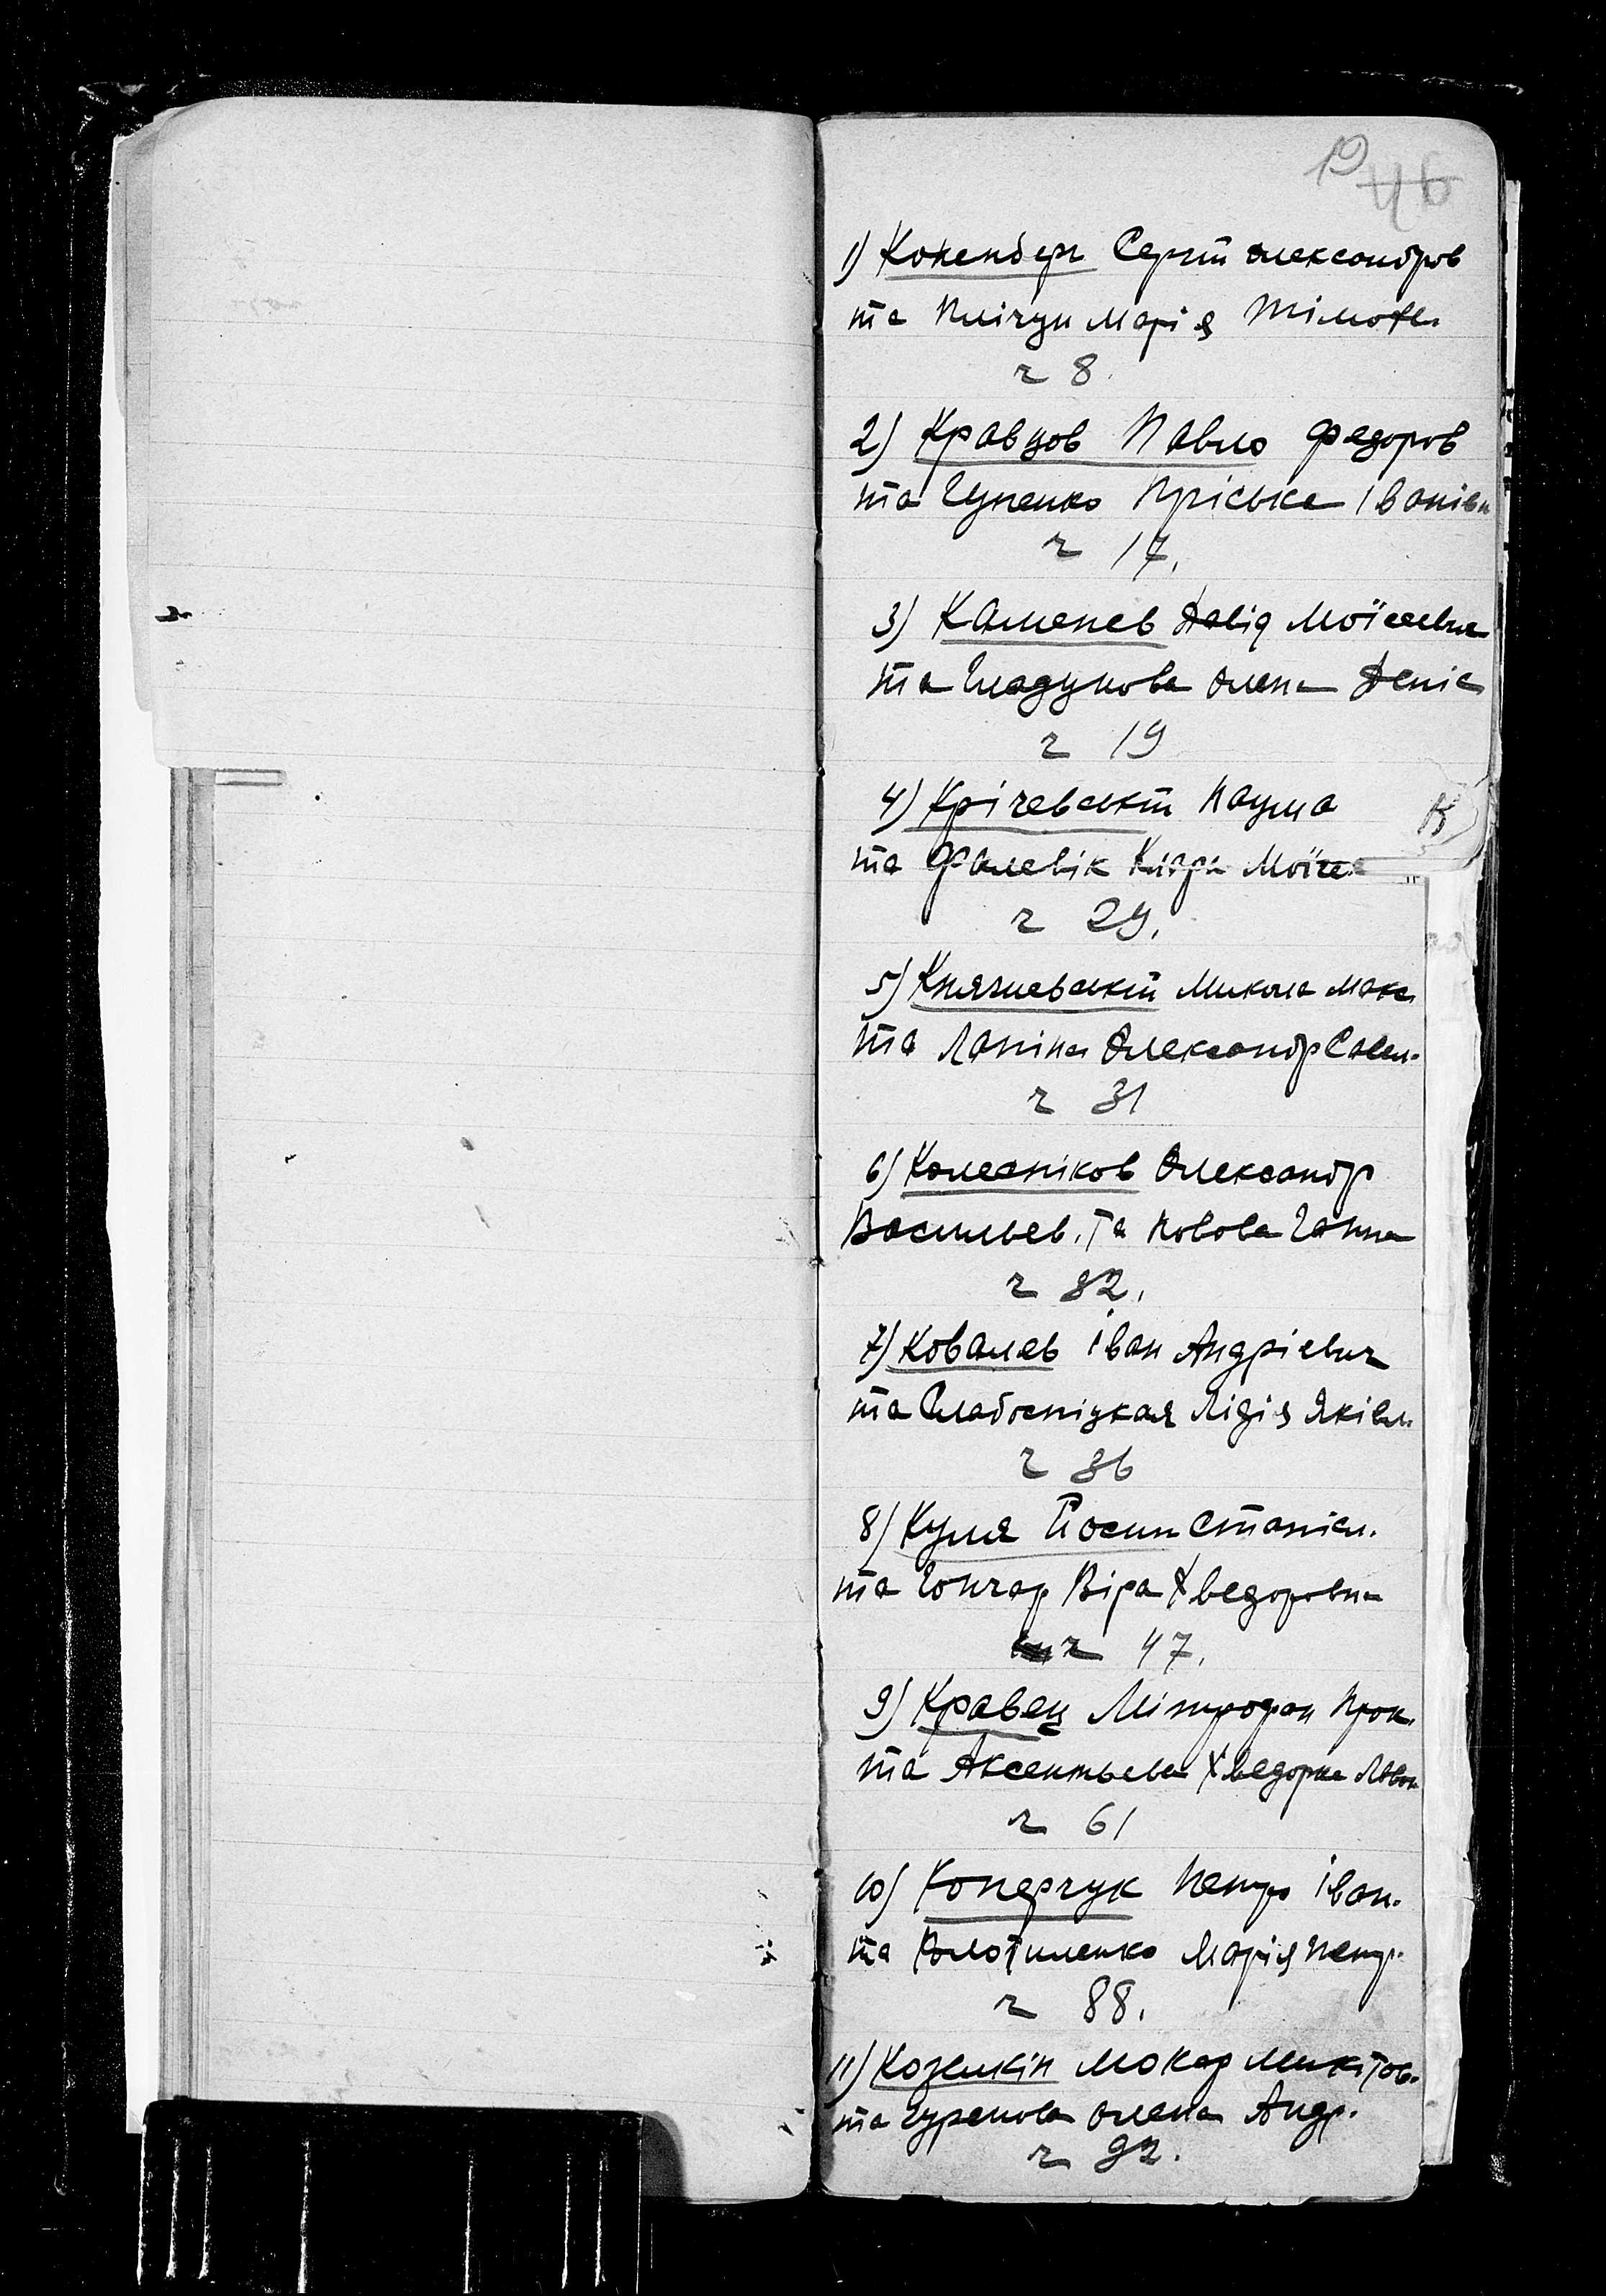 19 46
1) Коненберг Сергій Олександров
та Клічун Марія Тімоф.
ч 8.
2) Кравцов Павло Федоров
та Гуненко Пріська Іванівн
ч 17.
3) Каменев Давід Моїсеевич
та Гладунова Олена Деніс
ч 19
4) Крічевській Наума
К
та Фалевік Клара Моїсе.
ч 29.
5) Княжневській Микола Макс.
та Лапіна Олександр Савел.
ч 31
6) Колесніков Олександр
Васильев. та Новова Ганна
ч 32.
7) Ковалев Іван Андріевич
та Слабосніцкая Лідія Яківл.
ч 36
8) Куля Йосип Станісл.
та Гончар Віра Хведоровна
ч 47.
9) Кравец Мітрофан Прок.
та Аксентьева Хведорка Львов
ч 61
10) Конерчук Петро Іван.
та Болотиленко Марія Петр.
ч 88.
11) Козелкін Мокар Микітов.
та Гуренова Олена Андр.
ч 92.